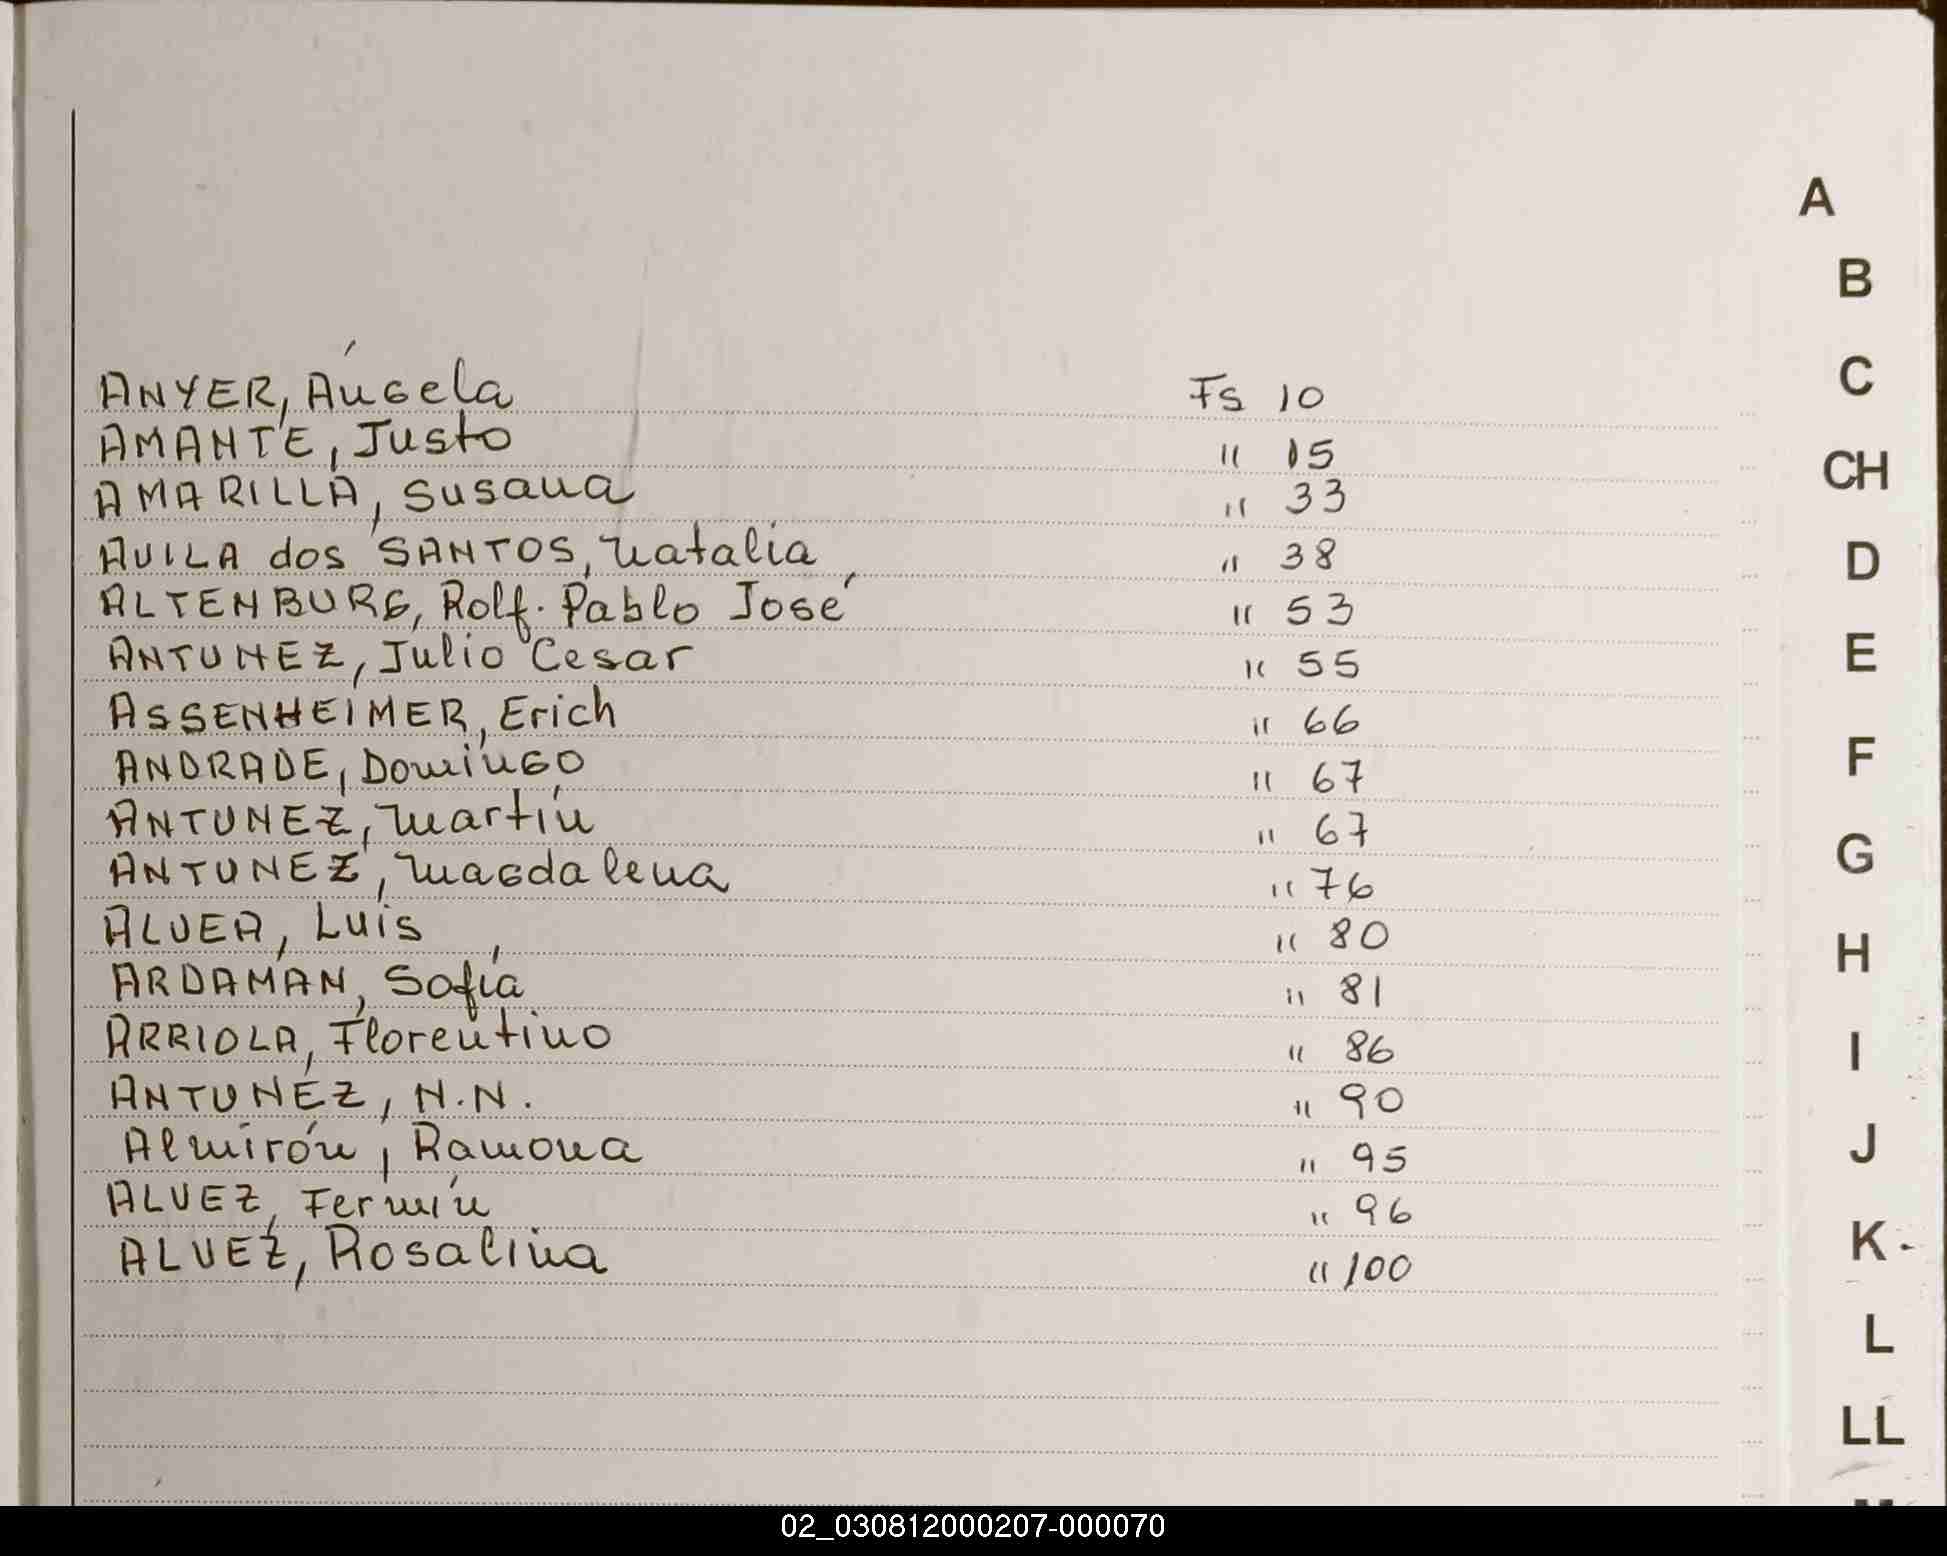 ANYER, Ángela Fs 10
AMANTE, Justo " 15
AMARILLA, Susana " 33
AVILA dos SANTOS, Natalia " 38
ALTENBURG, Rolf. Pablo José " 53
ANTUNEZ, Julio Cesar " 55
ASSENHEIMER, Erich " 66
ANDRADE, Domingo " 67
ANTUNEZ, Martín " 67
ANTUNEZ, Magdalena " 76
ALVEA, Luis " 80
ARDAMAN, Sofía " 81
ARRIOLA, Florentino " 86
ANTUNEZ, N.N. " 90
Almirón, Ramona " 95
ALVEZ, Fermín " 96
ALVEZ, Rosalina " 100
A
B
C
CH
D
E
F
G
H
I
J
K
L
LL
02_030812000207-000070